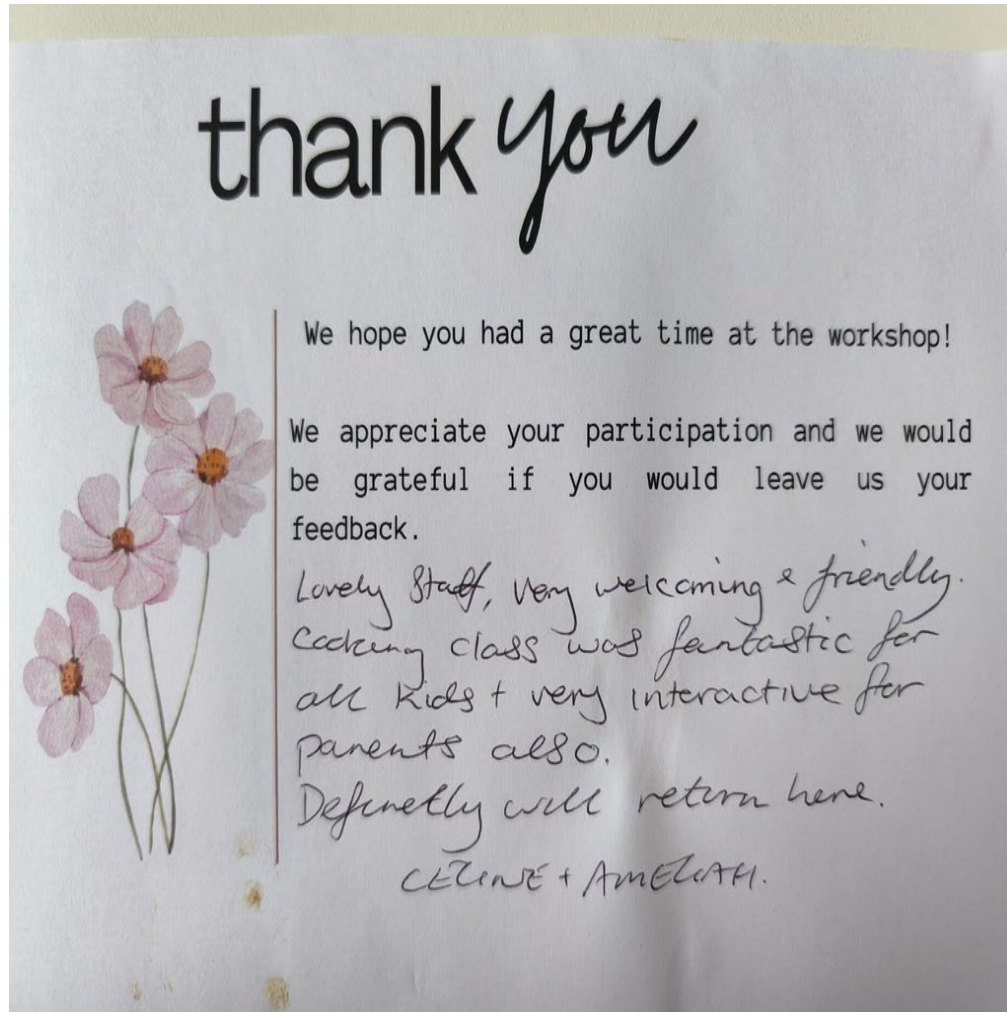 thank you
We hope you had a great time at the workshop!
We appreciate your participation and we would
be grateful if you would leave us your
feedback.
Lovely Staff, very welcoming & friendly.
Cooking class was fantastic for
all kids + very interactive for
parents also.
Definetly will return here.
CELINE + AMELIAH.